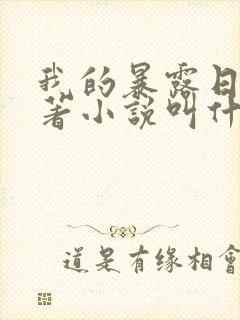 我的暴露日
著小说叫什
道是有缘相會